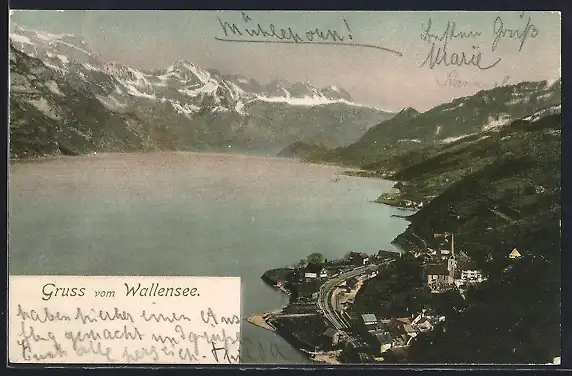 Mühlehorn!
Besten Gruß
Marie
Gruss vom Wallensee.
haben hierher einen Aus
flug gemacht und grüße
Euch alle herzich. Hulda